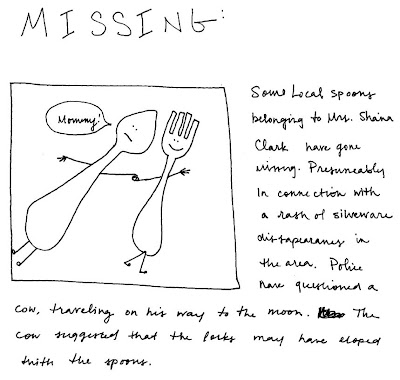 MISSING:
Mommy!
Some Local spoons
belonging to Mrs. Shana
Clark have gone
missing. Presumeably
In connection with
a rash of silverware
dissapearances in
the area. Police
have questioned a
cow, traveling on his way to the moon. The
cow suggested that the forks may have eloped
with the spoons.